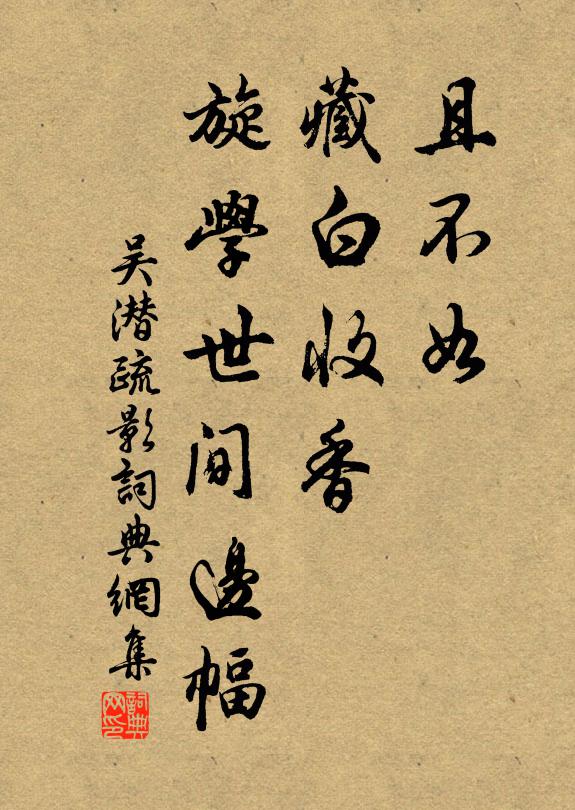 且不如
藏白收香
旋學世间邊幅
吴潜疏影詞典網集
詞典网印